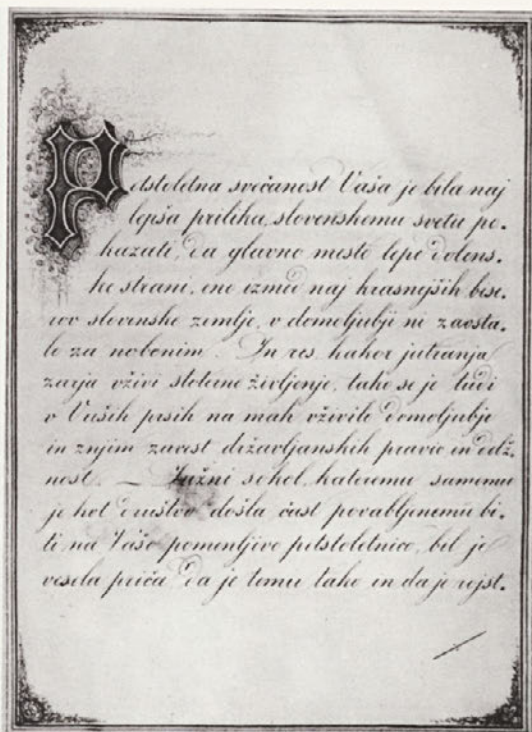 Petstoletna svečanost Vaša je bila naj
lepša prilika, slovenskemu svetu po-
kazati, da glavno mesto lepe dolens-
ke strani, ene izmed naj krasnejših bise-
rov slovenske zemlje, v domoljubji ni zaosta-
lo za nobenim. In res, kakor jutranja
zarja vživi stoterno življenje, tako se je tudi
v Vaših prsih na mah vživilo domoljubje
in znjim zavest državljanskih pravic in dolž-
nost. — Južni sokol, kateremu samemu
je kot društvo došla čast povabljenemu bi-
ti, na Vašo pomenljivo petstoletnico, bil je
vesela priča, da je temu tako in da je rojst-